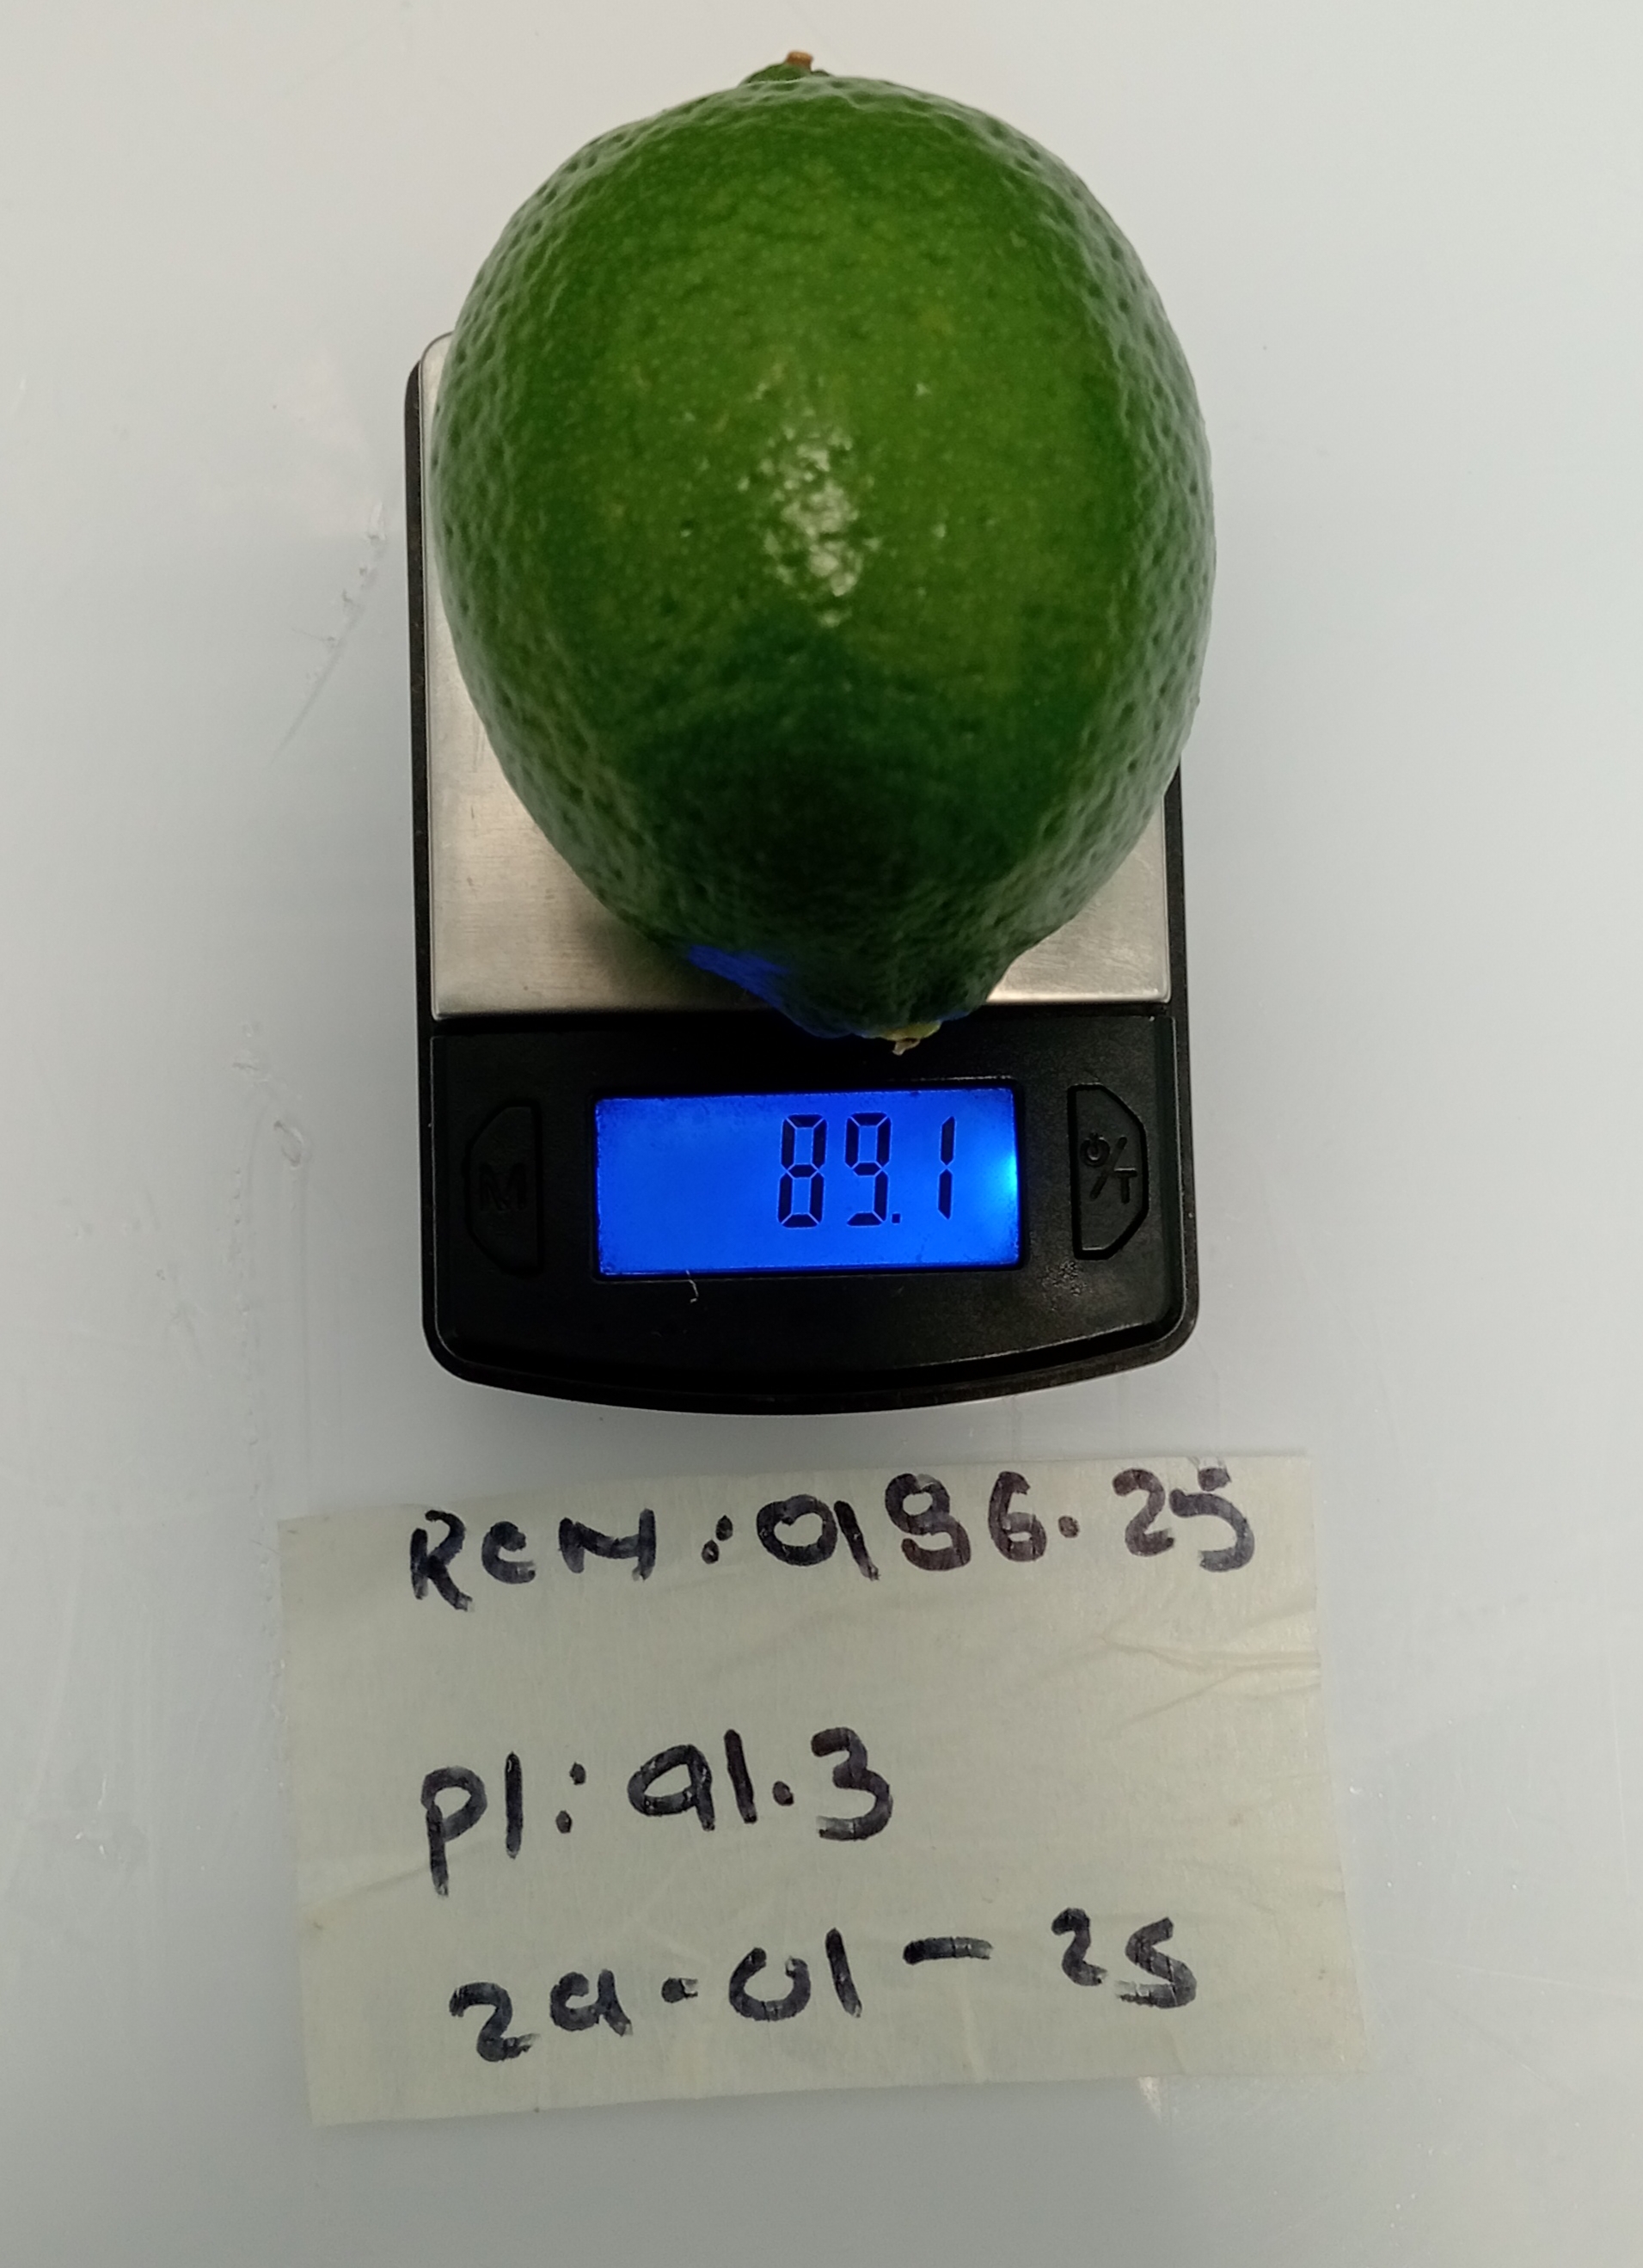 M
89.1
⏻/T
RCM: 0196.25
P1: 91.3
29.01-25